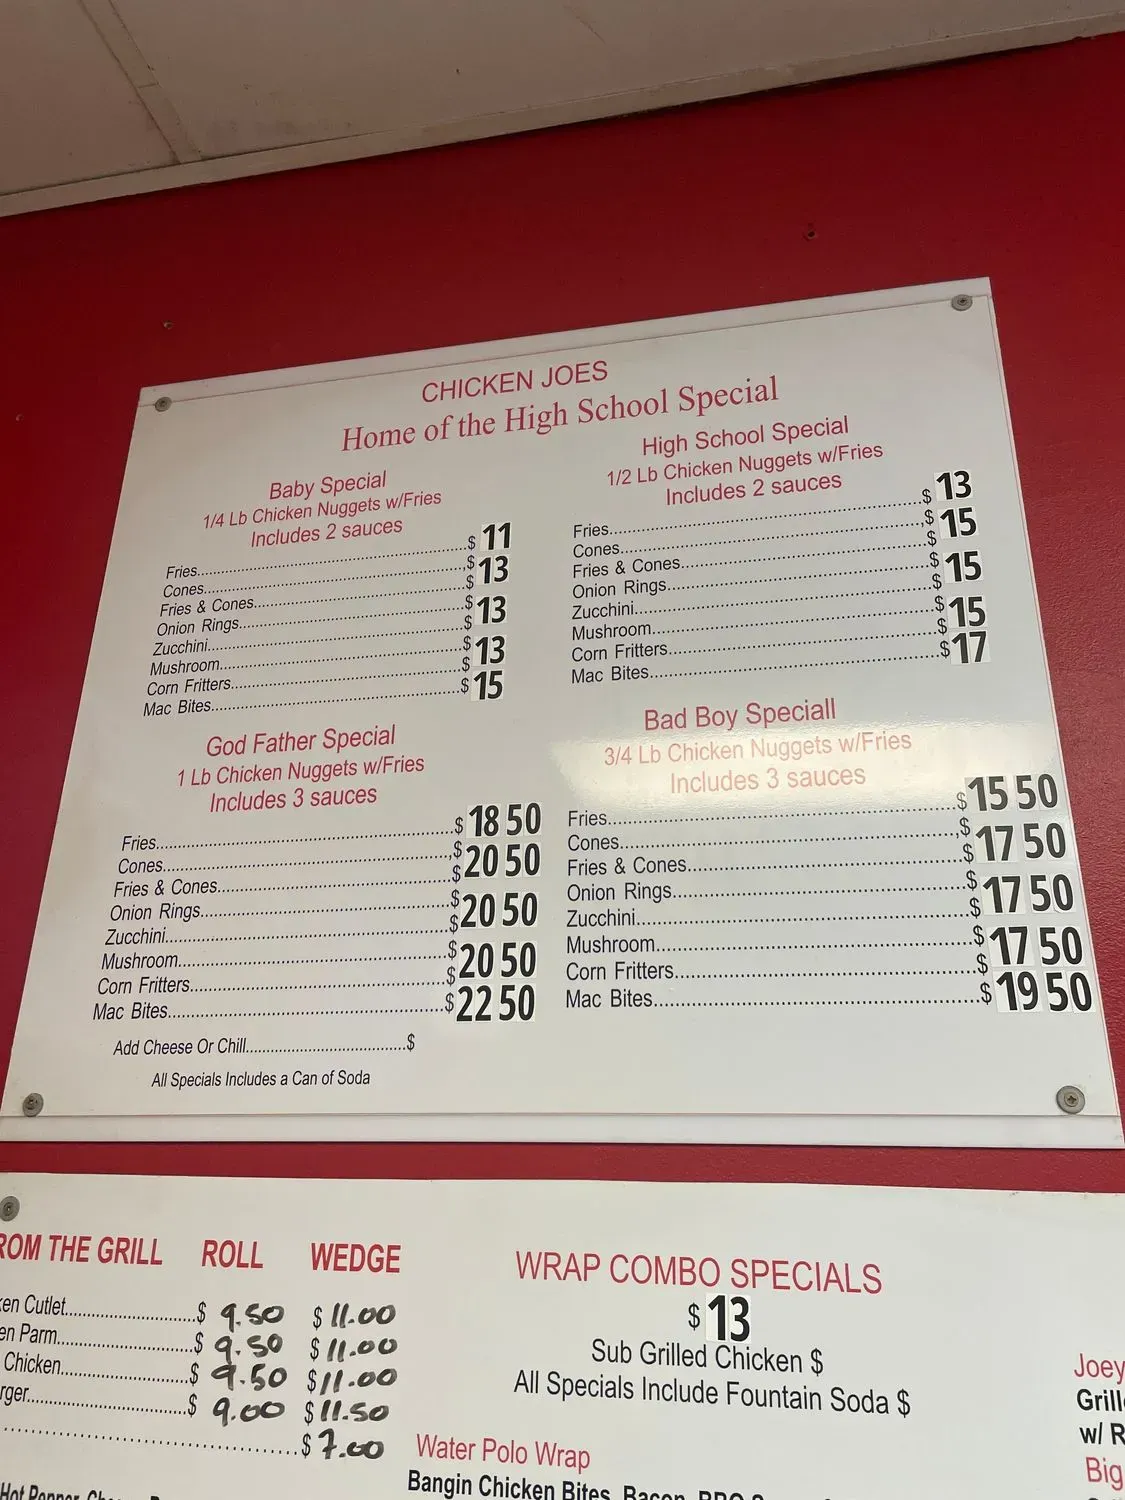 CHICKEN JOES
Home of the High School Special
Baby Special
1/4 Lb Chicken Nuggets w/Fries
Includes 2 sauces
Fries..........$ 11
Cones..........$
Fries & Cones..........$ 13
Onion Rings..........$
Zucchini..........$ 13
Mushroom..........$
Corn Fritters..........$ 13
Mac Bites..........$ 15
High School Special
1/2 Lb Chicken Nuggets w/Fries
Includes 2 sauces
Fries..........$ 13
Cones..........$
Fries & Cones..........$ 15
Onion Rings..........$
Zucchini..........$ 15
Mushroom..........$
Corn Fritters..........$ 15
Mac Bites..........$ 17
God Father Special
1 Lb Chicken Nuggets w/Fries
Includes 3 sauces
Fries..........$ 18 50
Cones..........$
Fries & Cones..........$ 20 50
Onion Rings..........$
Zucchini..........$ 20 50
Mushroom..........$
Corn Fritters..........$ 20 50
Mac Bites..........$ 22 50
Add Cheese Or Chill..........$
All Specials Includes a Can of Soda
Bad Boy Speciall
3/4 Lb Chicken Nuggets w/Fries
Includes 3 sauces
Fries..........$ 15 50
Cones..........$
Fries & Cones..........$ 17 50
Onion Rings..........$
Zucchini..........$ 17 50
Mushroom..........$
Corn Fritters..........$ 17 50
Mac Bites..........$ 19 50
ROM THE GRILL ROLL WEDGE
ken Cutlet..........$ 9.50 $ 11.00
en Parm..........$ 9.50 $ 11.00
Chicken..........$ 9.50 $ 11.00
rger..........$ 9.00 $ 11.50
..........$ 7.00
Hot Pepper,
WRAP COMBO SPECIALS
$ 13
Sub Grilled Chicken $
All Specials Include Fountain Soda $
Water Polo Wrap
Bangin Chicken Bites, Bacon, BBQ
Joey
Grill
w/ R
Big